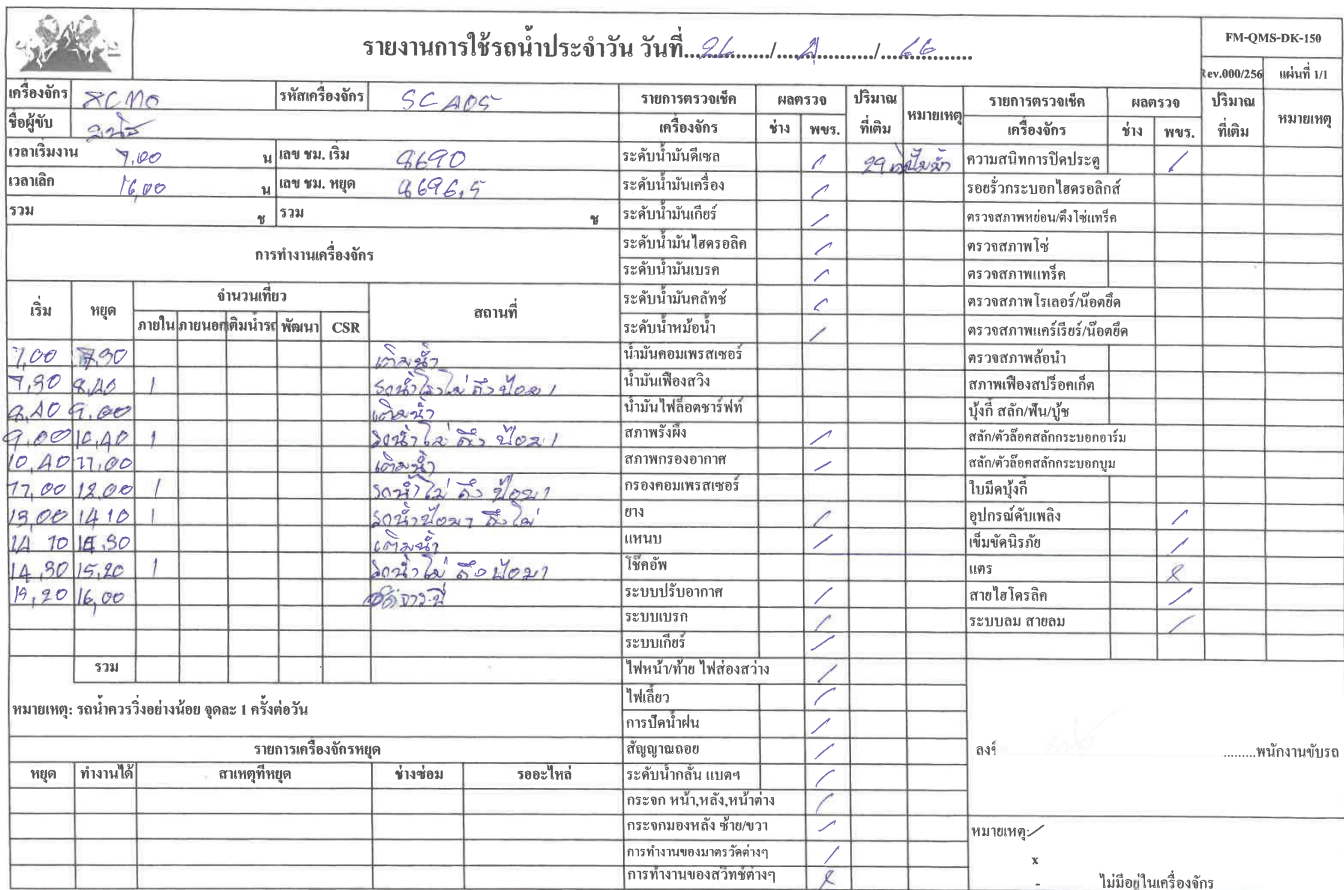 รายงานการใช้รถน้ำประจำวัน วันที่...26............/............../....66............
FM-QMS-DK-150
Rev.000/256 แผ่นที่ 1/1
เครื่องจักร XCMG รหัสเครื่องจักร SC A05
ชื่อผู้ขับ
เวลาเริ่มงาน 7,00 น เลข ชม. เริ่ม 8690
เวลาเลิก 16,00 น เลข ชม. หยุด 8696,5
รวม ช รวม ช
การทำงานเครื่องจักร
เริ่ม หยุด จำนวนเที่ยว สถานที่
ภายใน ภายนอก เติมน้ำรถ พัฒนา CSR
7,00 7,30 เติมน้ำ
7,30 8,40 1 รถน้ำโรงโม่ ถึง ป้อม 1
8,40 9,00 เติมน้ำ
9,00 10,40 1 รถน้ำโม่ ถึง ป้อม 1
10,40 11,00 เติมน้ำ
11,00 12,00 1 รถน้ำโม่ ถึง ป้อม 1
13,00 14 10 1 รถน้ำป้อม 1 ถึง โม่
14 10 14,30 เติมน้ำ
14,30 15,20 1 รถน้ำโม่ ถึง ป้อม 1
15,20 16,00 อัดจารบี
รวม
หมายเหตุ: รถน้ำควรวิ่งอย่างน้อย จุดละ 1 ครั้งต่อวัน
รายการเครื่องจักรหยุด
หยุด ทำงานได้ สาเหตุที่หยุด ช่างซ่อม รออะไหล่
รายการตรวจเช็ค ผลตรวจ ปริมาณ หมายเหตุ
เครื่องจักร ช่าง พขร. ที่เติม
ระดับน้ำมันดีเซล / 29 ปั๊มน้ำ
ระดับน้ำมันเครื่อง /
ระดับน้ำมันเกียร์ /
ระดับน้ำมันไฮดรอลิค /
ระดับน้ำมันเบรค /
ระดับน้ำมันคลัทช์ /
ระดับน้ำหม้อน้ำ /
น้ำมันคอมเพรสเซอร์
น้ำมันเฟืองสวิง
น้ำมันไฟล็อตชาร์ฟท์
สภาพรังผึ้ง /
สภาพกรองอากาศ /
กรองคอมเพรสเซอร์
ยาง /
แหนบ /
โช๊คอัพ
ระบบปรับอากาศ /
ระบบเบรก /
ระบบเกียร์ /
ไฟหน้า/ท้าย ไฟส่องสว่าง /
ไฟเลี้ยว /
การปัดน้ำฝน /
สัญญาณถอย /
ระดับน้ำกลั่น แบตฯ /
กระจก หน้า,หลัง,หน้าต่าง /
กระจกมองหลัง ซ้าย/ขวา /
การทำงานของมาตรวัดต่างๆ /
การทำงานของสวิทช์ต่างๆ x
รายการตรวจเช็ค ผลตรวจ ปริมาณ หมายเหตุ
เครื่องจักร ช่าง พขร. ที่เติม
ความสนิทการปิดประตู /
รอยรั่วกระบอกไฮดรอลิกส์
ตรวจสภาพหย่อน/ตึงโซ่แทร็ค
ตรวจสภาพโซ่
ตรวจสภาพแทร็ค
ตรวจสภาพโรเลอร์/น๊อตยึด
ตรวจสภาพแคร์เรียร์/น๊อตยึด
ตรวจสภาพล้อนำ
สภาพเฟืองสปร็อคเก็ต
บุ้งกี๋ สลัก/ฟัน/บู้ช
สลัก/ตัวล็อคสลักกระบอกอาร์ม
สลัก/ตัวล็อคสลักกระบอกบูม
ใบมีดบุ้งกี๋
อุปกรณ์ดับเพลิง /
เข็มขัดนิรภัย /
แตร x
สายไฮโดรลิค /
ระบบลม สายลม /
ลงชื่ .........พนักงานขับรถ
หมายเหตุ:/
x
- ไม่มีอยู่ในเครื่องจักร